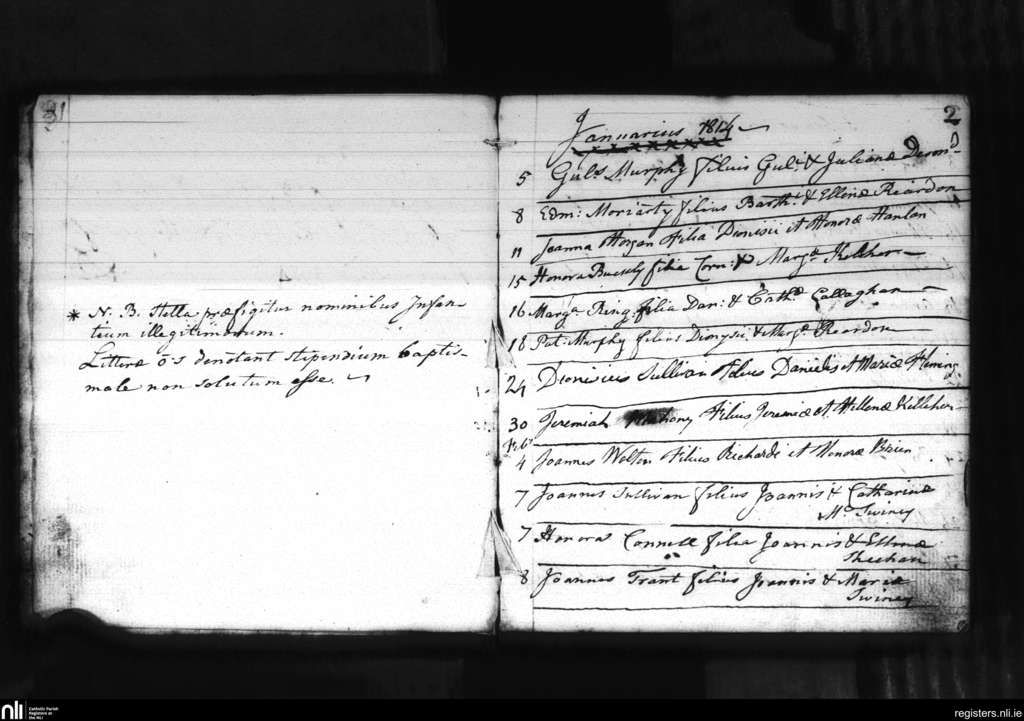 * N. B. Stella præfigitur nominibus Infan-
tium illegitimorum.
Litteræ ō-s denotant stipendium baptis-
male non solutum esse.
2
Januarius 1814
5 Gul.s Murphy filius Gul.i & Julianæ
8 Edm: Moriarty filius Barth.i & Ellenæ Reardon
11 Joanna Horgan Filia Dionisii et Honoræ Hanlon
15 Honora Buckly filia Corn: & Marg.æ Kelleher
16 Marg.a Ring filia Dan: & Cath.æ Callaghan
18 Pat: Murphy filius Dionysii & Marg.æ Reardon
24 Dionisius Sullivan Filius Danielis et Mariæ Fleming
30 Jeremiah Mahony Filius Jeremiæ et Hellenæ Kelleher
Feb.
4 Joannes Welton Filius Richardi et Honoræ Brien
7 Joannes Sullivan filius Joannis & Catharinæ
Mc Swiney
7 Honora Connell filia Joannis & Ellenæ
Sheehan
8 Joannes Trant filius Joannis & Mariæ
Swiney
nli
Catholic Parish
Registers at
the NLI
registers.nli.ie